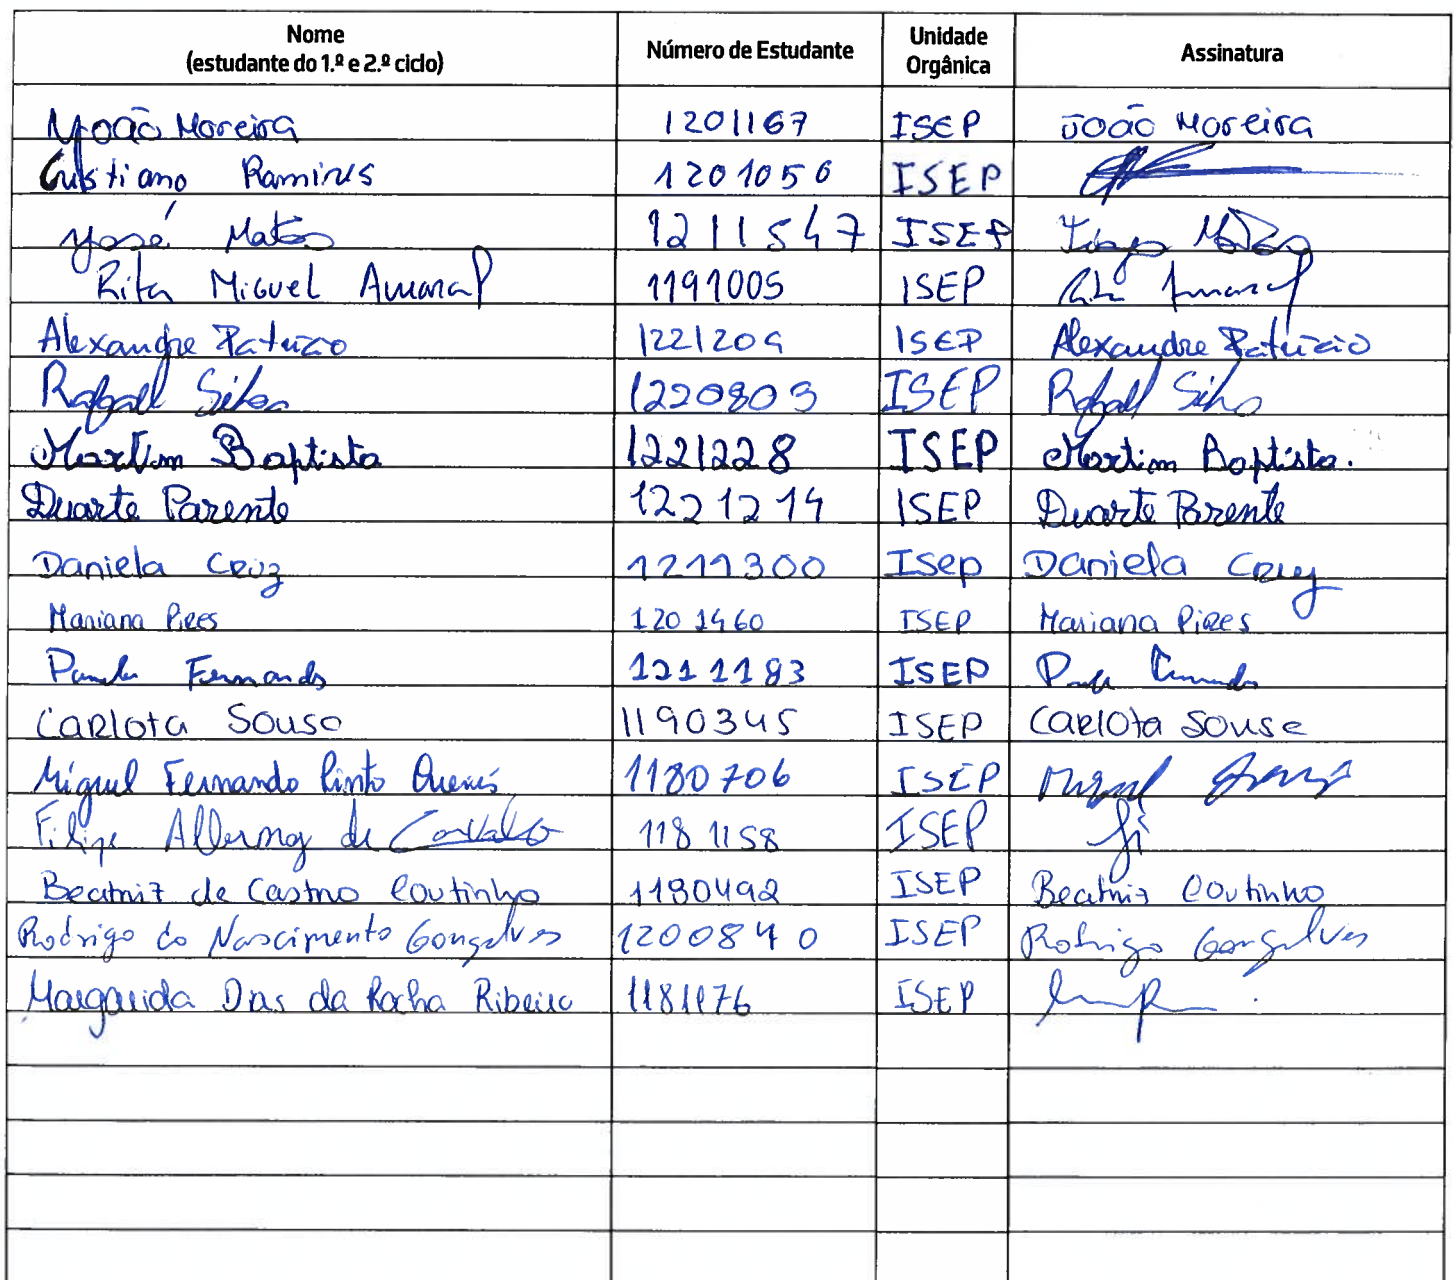 Nome (estudante do 1.º e 2.º ciclo) Número de Estudante Unidade Orgânica Assinatura
João Moreira 1201167 ISEP João Moreira
Cristiano 1201056 ISEP
José Matos 1211547 ISEP
Rita Miguel Amaral 1191005 ISEP Rita Amaral
Alexandre Patrício 1221209 ISEP Alexandre Patrício
Rafael Silva 1220803 ISEP Rafael Silva
Martim Baptista 1221228 ISEP Martim Baptista.
Duarte Parente 1221214 ISEP Duarte Parente
Daniela Cruz 1211300 Isep Daniela Cruz
Mariana Pires 1201460 ISEP Mariana Pires
Fernandes 1211183 ISEP
Carlota Sousa 1190345 ISEP Carlota Sousa
Miguel Fernando Pinto 1180706 ISEP Miguel
Filipe de Carvalho 1181158 ISEP
Beatriz de Castro Coutinho 1180492 ISEP Beatriz Coutinho
Rodrigo do Nascimento Gonçalves 1200840 ISEP Rodrigo Gonçalves
Margarida Dias da Rocha Ribeiro 1181176 ISEP